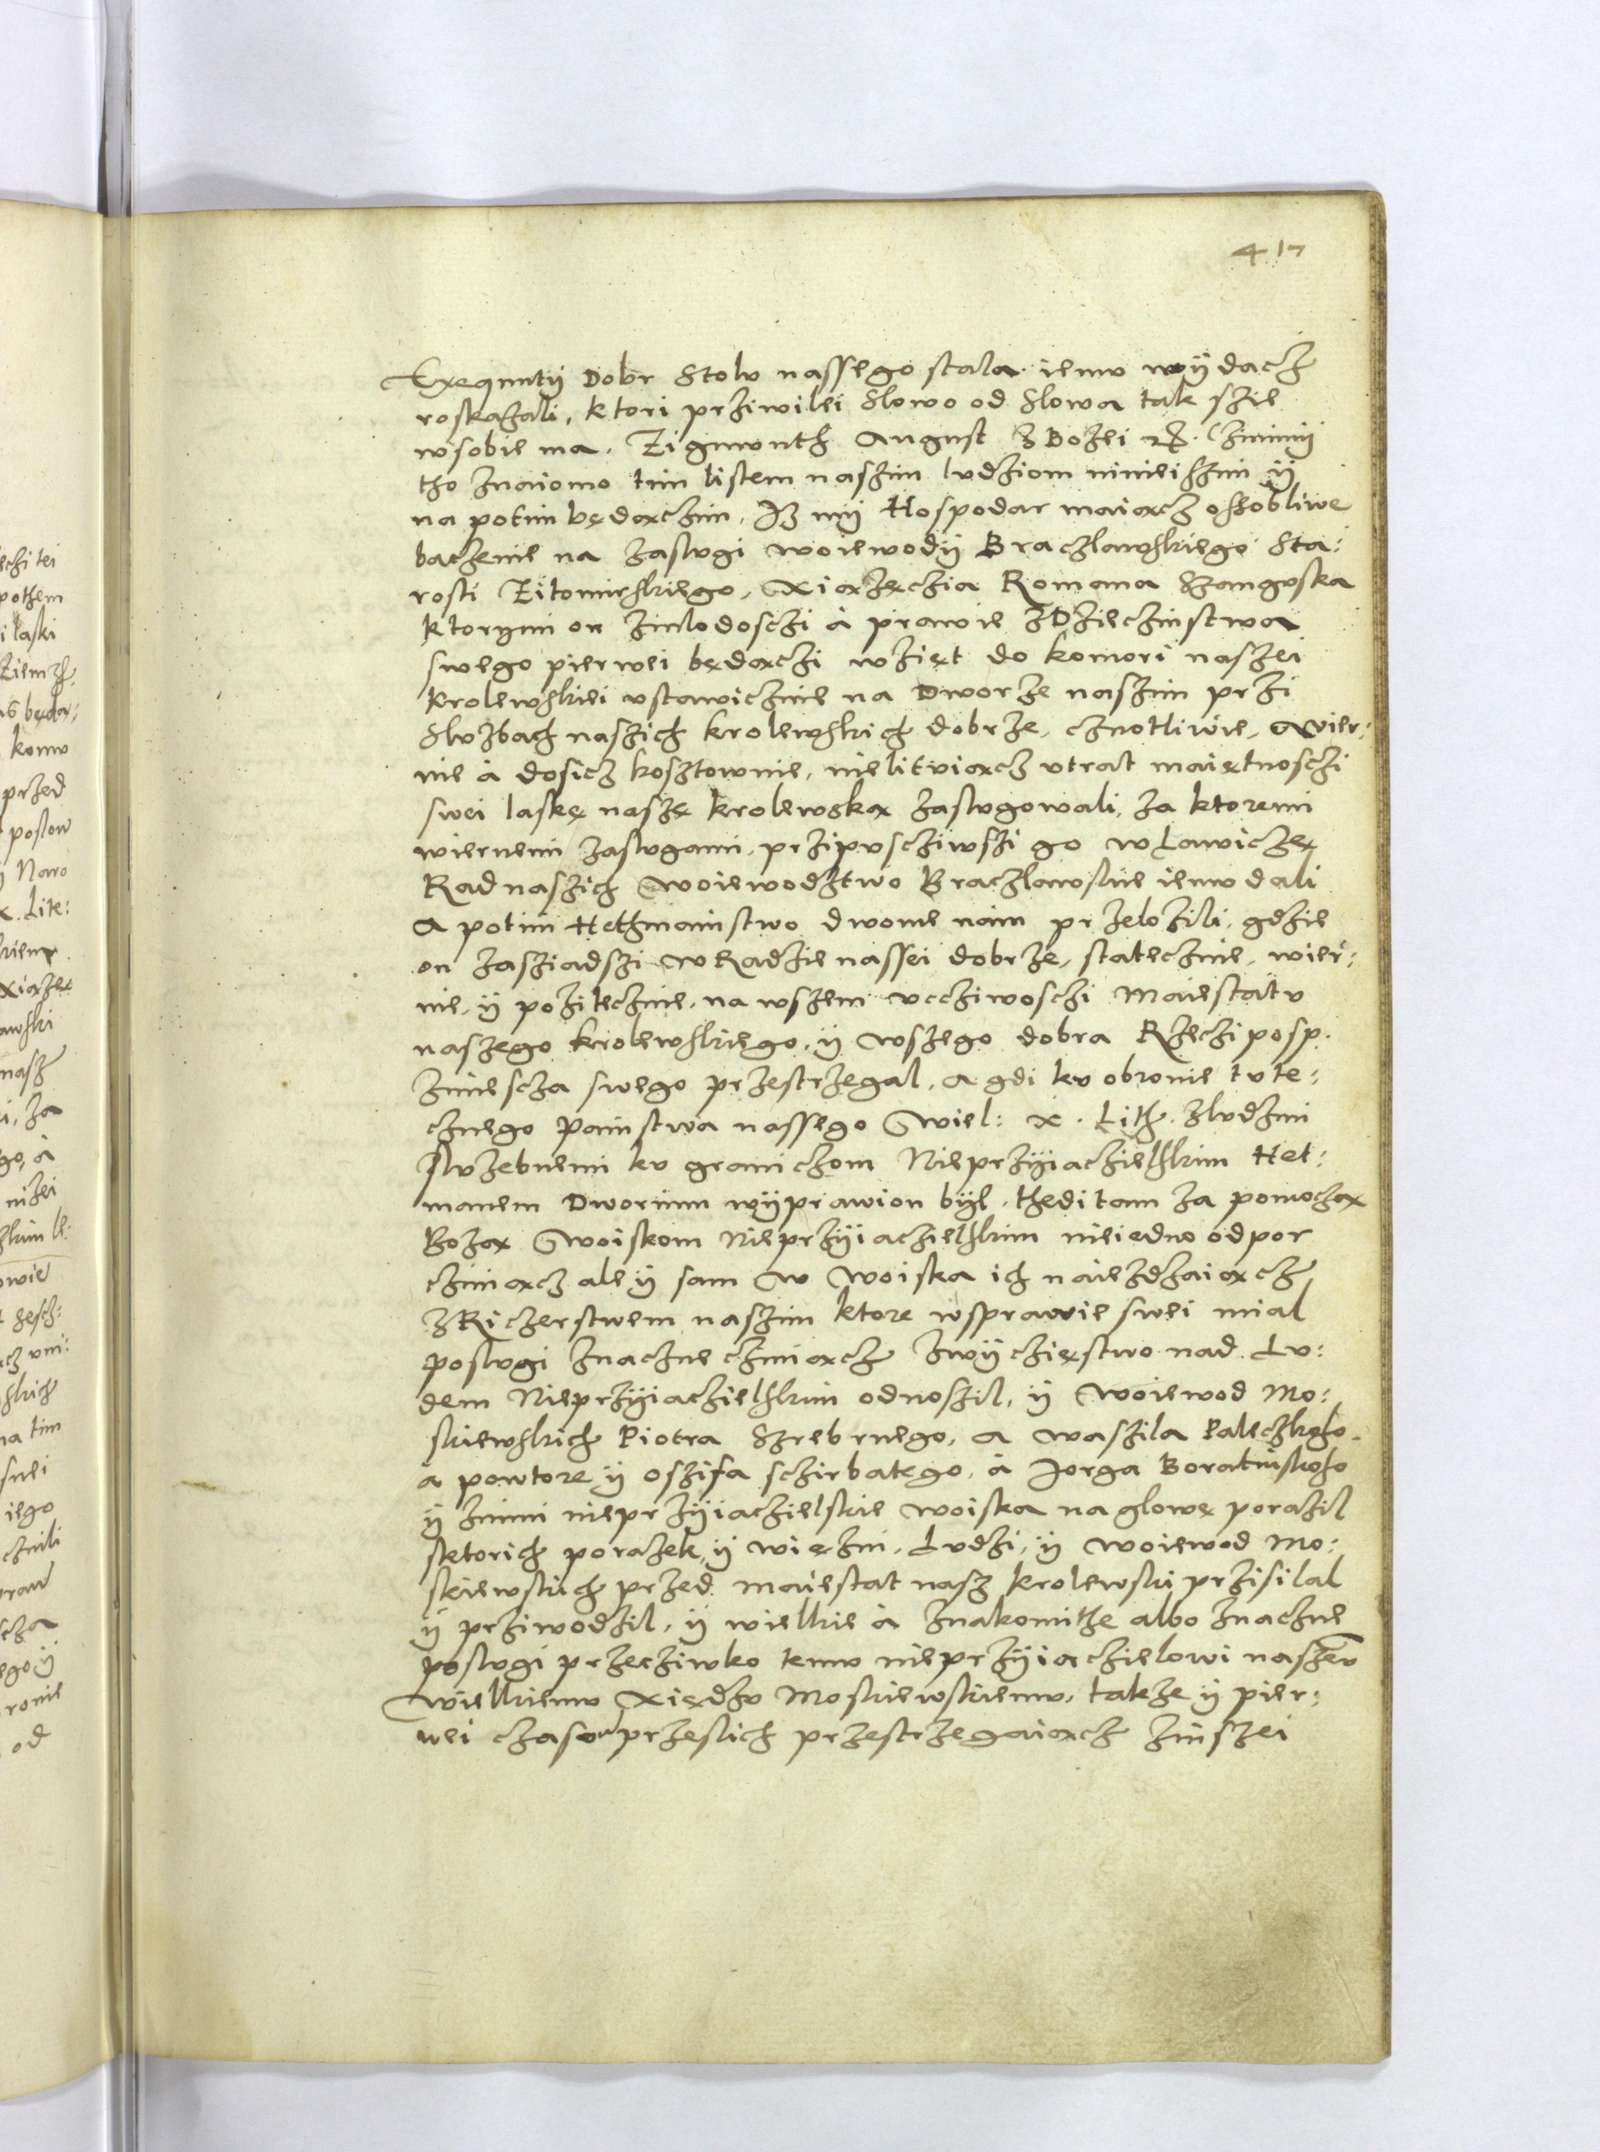 417
Exequutÿ Dobr Stolu nassego stala iemu wÿdacz
roskazali, ktori prziwilei slowo od slowa tak szie
wsobie ma. Zigmunth August z Bozei etc. Czinimÿ
tho znaiomo tim listem naszim ludziom ninieiszim ÿ
na potim będączim, Iz mÿ Hospodar maiącz oszobliwe
baczenie na zaslugi woiewodÿ Braczlawskiego Sta:
rosti Zitomirskiego, Xiążęczia Romana Szanguska
ktorymi on zmlodosczi à prawie zDzieczinstwa
swego pierwei będączi wzięt do komori naszei
krolewskiei ustawicznie na Dworze naszim przi
sluzbach naszich krolewskich dobrze, cznotliwie, wier:
nie à dosicz kosztownie, nielituiącz utrat maiętnosczi
swei laskę naszę krolewską zaslugowali, za ktoremi
wiernemi zaslugami, przipusciwszi go w Lawiczę
Rad naszich woiewodztwo Braczlawskie iemu dali
A potim Hethmainstwo dworne nam przelozili, gdzie
on zasziadszi w Radzie nassei dobrze, statecznie, wier:
nie, ÿ pozitecznie, na wszem ucziwosczi Maiestatu
naszego krolewskiego, ÿ wszego dobra Rzeczi posp.
zmiescza swego przestrzegal, a gdi ku obronie tute:
cznego Painstwa nassego Wiel: X. Lith. zludzmi
sluzebnemi ku graniczom Nieprzÿiaczielskim Het:
manem Dwornim wÿprawion bÿl, thedi tam za pomoczą
Bozą woiskom Nieprzÿiaczielskim nieiedno odpor
cziniącz ale ÿ sam w woiska ich naiezdzaiącz
z Riczerstwem naszim ktore wsprawie swei mial
poslugi znaczne cziniącz zwÿcięstwo nad Lu:
dem Nieprzÿiaczielskim odnoszil, ÿ woiewod Mo:
skiewskich Piotra Szrebrnego, a waszila Paleczkoho
à powtore ÿ oszifa sczirbatego, à Jorga Boratinskoho
ÿ znimi nieprzÿiaczielskie woiska na glowę poraził
sktorich porazek, ÿ więzni, Ludzi, ÿ woiewod Mo:
skiewskich przed maiestat nasz krolewski przisilal
ÿ prziwodzil, ÿ wielkie à znakomithe albo znaczne
poslugi przecziwko temu nieprzÿiaczielowi naszeu
wielkiemu Xiędzu Moskiewskiemu, takze ÿ pier:
wei czasow przeslich przestrzegaiącz zinszei